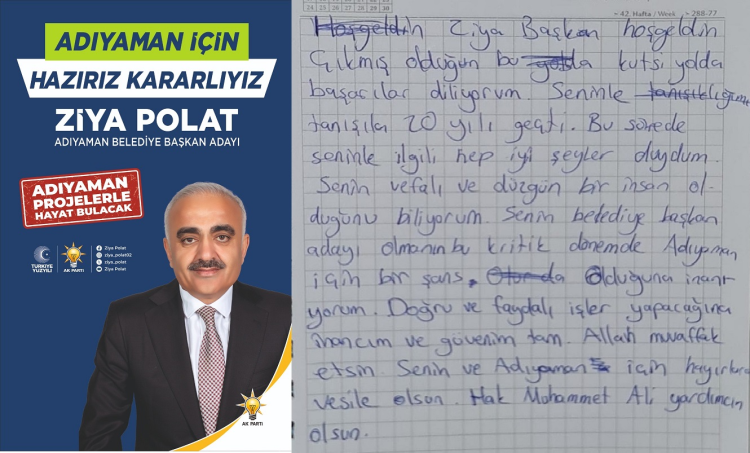 ADIYAMAN İÇİN
HAZIRIZ KARARLIYIZ
ZİYA POLAT
ADIYAMAN BELEDİYE BAŞKAN ADAYI
ADIYAMAN
PROJELERLE
HAYAT BULACAK
TÜRKİYE
YÜZYILI
AK PARTİ
Ziya Polat
ziya_polat02
ziya_polat
Ziya Polat
AK PARTİ
42 Hafta / Week
288-77
Hoşgeldin Ziya Başkan hoşgeldin
Çıkmış olduğun bu yolda kutsi yolda
başarılar diliyorum. Seninle
tanışıla 20 yılı geçti. Bu sürede
seninle ilgili hep iyi şeyler duydum.
Senin vefalı ve düzgün bir insan ol-
duğunu biliyorum. Senin belediye başkan
adayı olmanın bu kritik dönemde Adıyaman
için bir şans. Olduğuna inanı-
yorum. Doğru ve faydalı işler yapacağına
inancım ve güvenim tam. Allah muvaffak
etsin. Senin ve Adıyaman için hayırlara
vesile olsun. Hak Mohammet Ali yardımcın
olsun.